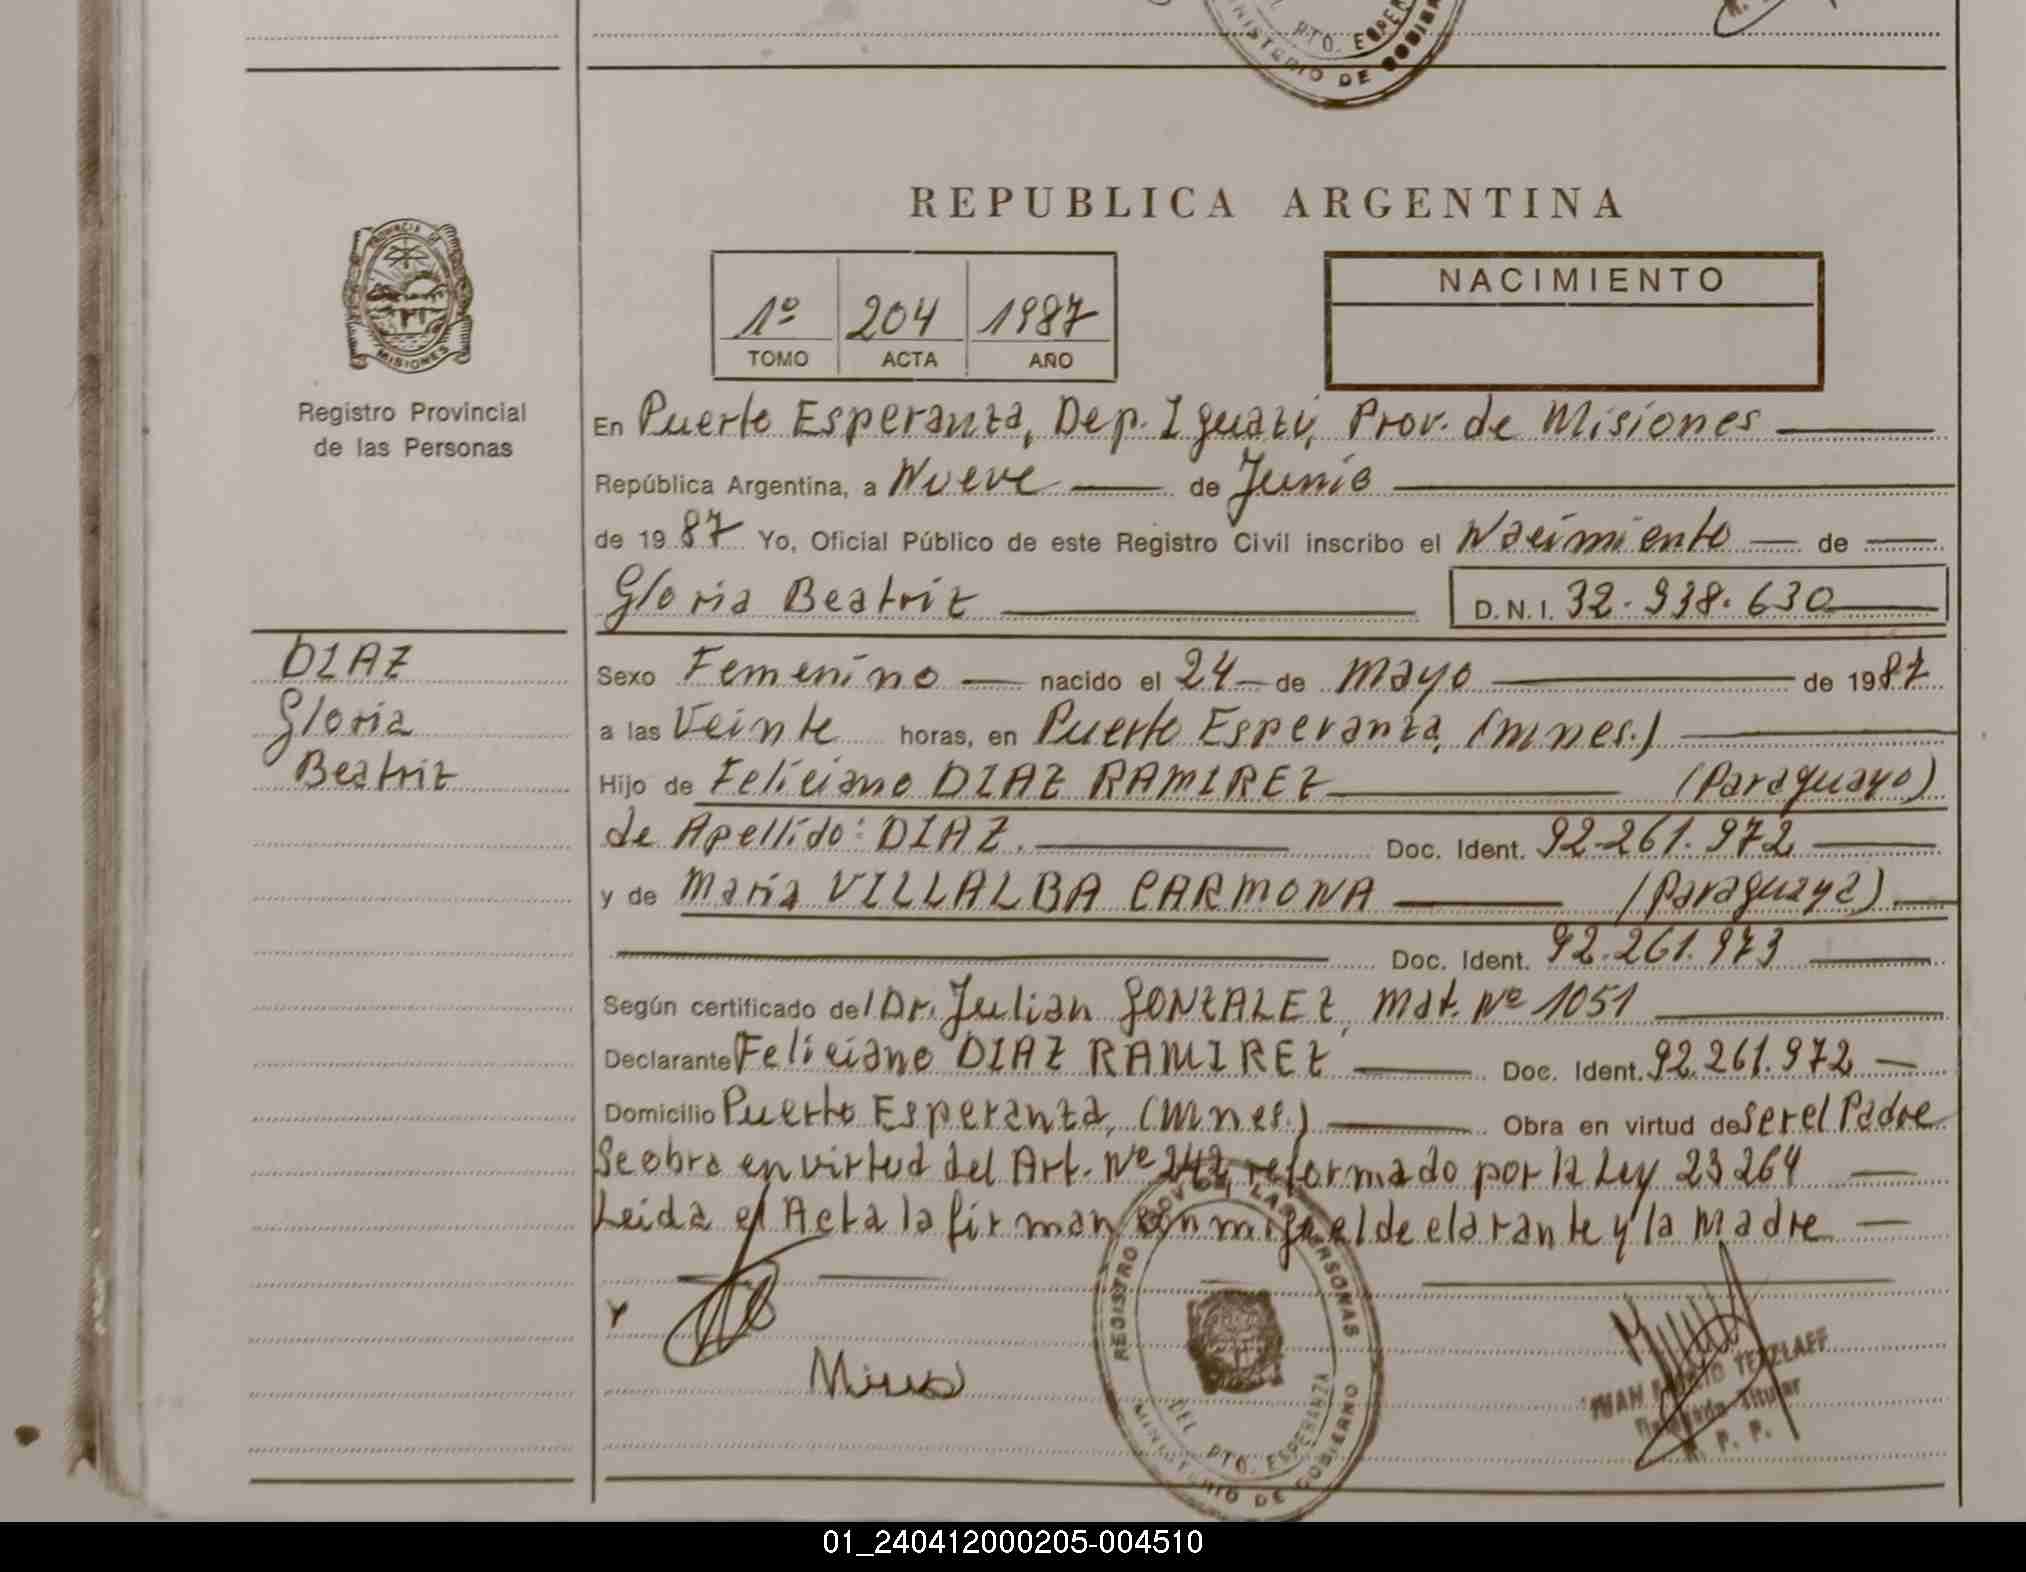 PTO. ESPER
MINISTERIO DE GOBIE
REPUBLICA ARGENTINA
PROVINCIA DE
MISIONES
Registro Provincial
de las Personas
1º 204 1987
TOMO ACTA AÑO
NACIMIENTO
En Puerto Esperanza, Dep. Iguazú, Prov. de Misiones
República Argentina, a Nueve de Junio
de 1987 Yo, Oficial Público de este Registro Civil inscribo el Nacimiento de
Gloria Beatriz D.N.I. 32.938.630
DIAZ
Gloria
Beatriz
Sexo Femenino nacido el 24 de Mayo de 1987
a las Veinte horas, en Puerto Esperanza, (Mnes.)
Hijo de Feliciano DIAZ RAMIREZ (Paraguayo)
de Apellido: DIAZ. Doc. Ident. 92.261.972
y de María VILLALBA CARMONA (Paraguaya)
Doc. Ident. 92.261.973
Según certificado del Dr. Julian GONZALEZ, Mat. Nº 1051
Declarante Feliciano DIAZ RAMIREZ Doc. Ident. 92.261.972
Domicilio Puerto Esperanza, (Mnes.) Obra en virtud de ser el Padre
Se obra en virtud del Art. Nº 242, reformado por la Ley 23264
Leida el Acta la firman con migo el declarante y la Madre
REGISTRO PROV. DE LAS PERSONAS
DEL. PTO. ESPERANZA
MINISTERIO DE GOBIERNO
JUAN TETZLAFF
Delegado Titular
R. P. P.
01_240412000205-004510